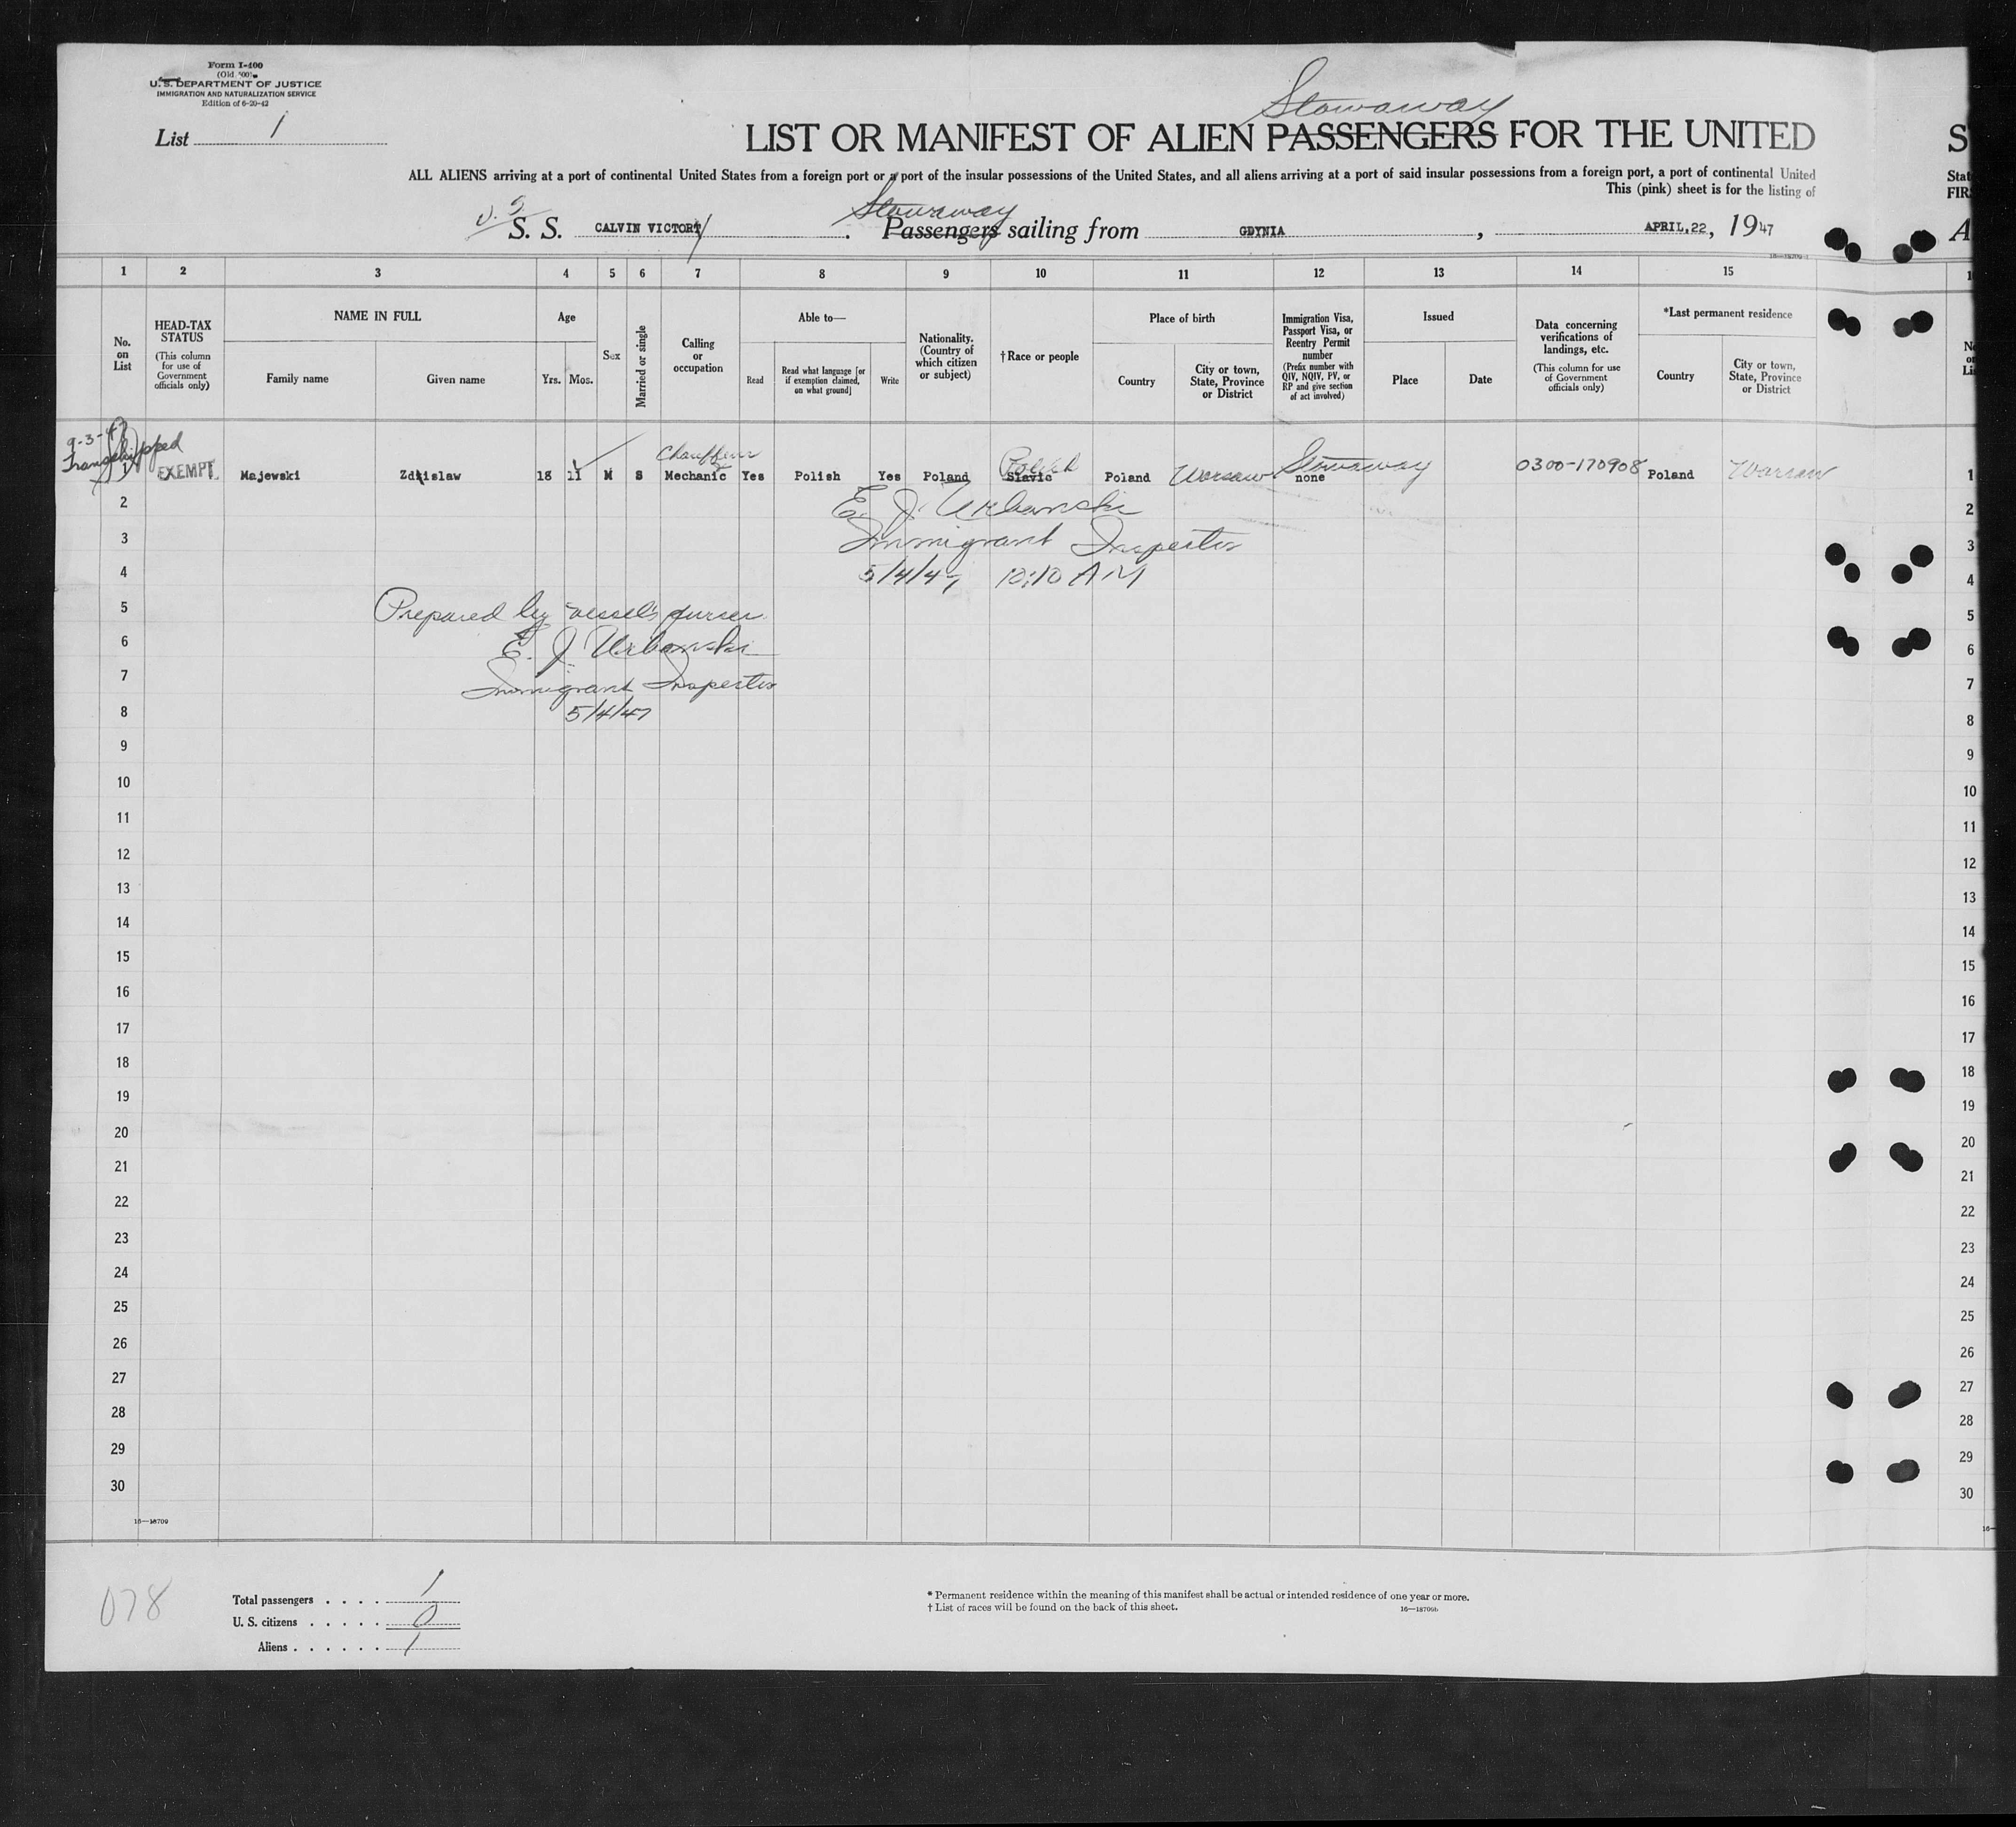 Form I-400
(Old 500)
U. S. DEPARTMENT OF JUSTICE
IMMIGRATION AND NATURALIZATION SERVICE
Edition of 6-20-42
List 1
Stowaway
LIST OR MANIFEST OF ALIEN PASSENGERS FOR THE UNITED
S
ALL ALIENS arriving at a port of continental United States from a foreign port or a port of the insular possessions of the United States, and all aliens arriving at a port of said insular possessions from a foreign port, a port of continental United
Stat
This (pink) sheet is for the listing of
FIR
Stowaway
S. S. CALVIN VICTORY. Passengers sailing from GDYNIA, APRIL.22, 1947
A
16—18709-1
1 2 3 4 5 6 7 8 9 10 11 12 13 14 15 1
No. on List
HEAD-TAX STATUS
(This column for use of Government officials only)
NAME IN FULL
Family name
Given name
Age
Yrs. Mos.
Sex
Married or single
Calling or occupation
Able to—
Read
Read what language [or if exemption claimed, on what ground]
Write
Nationality. (Country of which citizen or subject)
†Race or people
Place of birth
Country
City or town, State, Province or District
Immigration Visa, Passport Visa, or Reentry Permit number
(Prefix number with QIV, NQIV, PV, or RP and give section of act involved)
Issued
Place
Date
Data concerning verifications of landings, etc.
(This column for use of Government officials only)
*Last permanent residence
Country
City or town, State, Province or District
9-3-47
Transhipped
Chauffeur Polish Stowaway
1 EXEMPT Majewski Zdzislaw 18 11 M S Mechanic Yes Polish Yes Poland Slavic Poland Warsaw none 0300-170908 Poland Warsaw 1
2 E. J. Urbanski 2
3 Immigrant Inspector 3
4 5/4/47 10:10 AM 4
5 Prepared by vessel's purser 5
6 E. J. Urbanski 6
7 Immigrant Inspector 7
8 5/4/47 8
9 9
10 10
11 11
12 12
13 13
14 14
15 15
16 16
17 17
18 18
19 19
20 20
21 21
22 22
23 23
24 24
25 25
26 26
27 27
28 28
29 29
30 30
16—18709
16—
078
Total passengers . . . . 1
U. S. citizens . . . . . 0
Aliens . . . . . . 1
* Permanent residence within the meaning of this manifest shall be actual or intended residence of one year or more.
† List of races will be found on the back of this sheet.
16—18709b